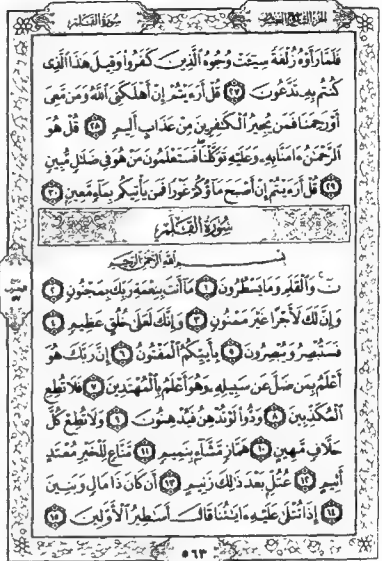 سُورَةُ القَلَمِ الجُزْءُ التَّاسِعُ وَالعِشْرُونَ
فَلَمَّا رَأَوْهُ زُلْفَةً سِيٓـَٔتْ وُجُوهُ ٱلَّذِينَ كَفَرُوا۟ وَقِيلَ هَٰذَا ٱلَّذِى
كُنتُم بِهِۦ تَدَّعُونَ ٢٧ قُلْ أَرَءَيْتُمْ إِنْ أَهْلَكَنِىَ ٱللَّهُ وَمَن مَّعِىَ
أَوْ رَحِمَنَا فَمَن يُجِيرُ ٱلْكَٰفِرِينَ مِنْ عَذَابٍ أَلِيمٍ ٢٨ قُلْ هُوَ
ٱلرَّحْمَٰنُ ءَامَنَّا بِهِۦ وَعَلَيْهِ تَوَكَّلْنَا ۖ فَسَتَعْلَمُونَ مَنْ هُوَ فِى ضَلَٰلٍ مُّبِينٍ
٢٩ قُلْ أَرَءَيْتُمْ إِنْ أَصْبَحَ مَآؤُكُمْ غَوْرًا فَمَن يَأْتِيكُم بِمَآءٍ مَّعِينٍۭ ٣٠
سُورَةُ القَلَمِ
بِسْمِ ٱللَّهِ ٱلرَّحْمَٰنِ ٱلرَّحِيمِ
نٓ ۚ وَٱلْقَلَمِ وَمَا يَسْطُرُونَ ١ مَآ أَنتَ بِنِعْمَةِ رَبِّكَ بِمَجْنُونٍ ٢
وَإِنَّ لَكَ لَأَجْرًا غَيْرَ مَمْنُونٍ ٣ وَإِنَّكَ لَعَلَىٰ خُلُقٍ عَظِيمٍ ٤
فَسَتُبْصِرُ وَيُبْصِرُونَ ٥ بِأَييِّكُمُ ٱلْمَفْتُونُ ٦ إِنَّ رَبَّكَ هُوَ
أَعْلَمُ بِمَن ضَلَّ عَن سَبِيلِهِۦ وَهُوَ أَعْلَمُ بِٱلْمُهْتَدِينَ ٧ فَلَا تُطِعِ
ٱلْمُكَذِّبِينَ ٨ وَدُّوا۟ لَوْ تُدْهِنُ فَيُدْهِنُونَ ٩ وَلَا تُطِعْ كُلَّ
حَلَّافٍ مَّهِينٍ ١٠ هَمَّازٍ مَّشَّآءٍۭ بِنَمِيمٍ ١١ مَّنَّاعٍ لِّلْخَيْرِ مُعْتَدٍ
أَثِيمٍ ١٢ عُتُلٍّۭ بَعْدَ ذَٰلِكَ زَنِيمٍ ١٣ أَن كَانَ ذَا مَالٍ وَبَنِينَ
١٤ إِذَا تُتْلَىٰ عَلَيْهِ ءَايَٰتُنَا قَالَ أَسَٰطِيرُ ٱلْأَوَّلِينَ ١٥
٥٦٣